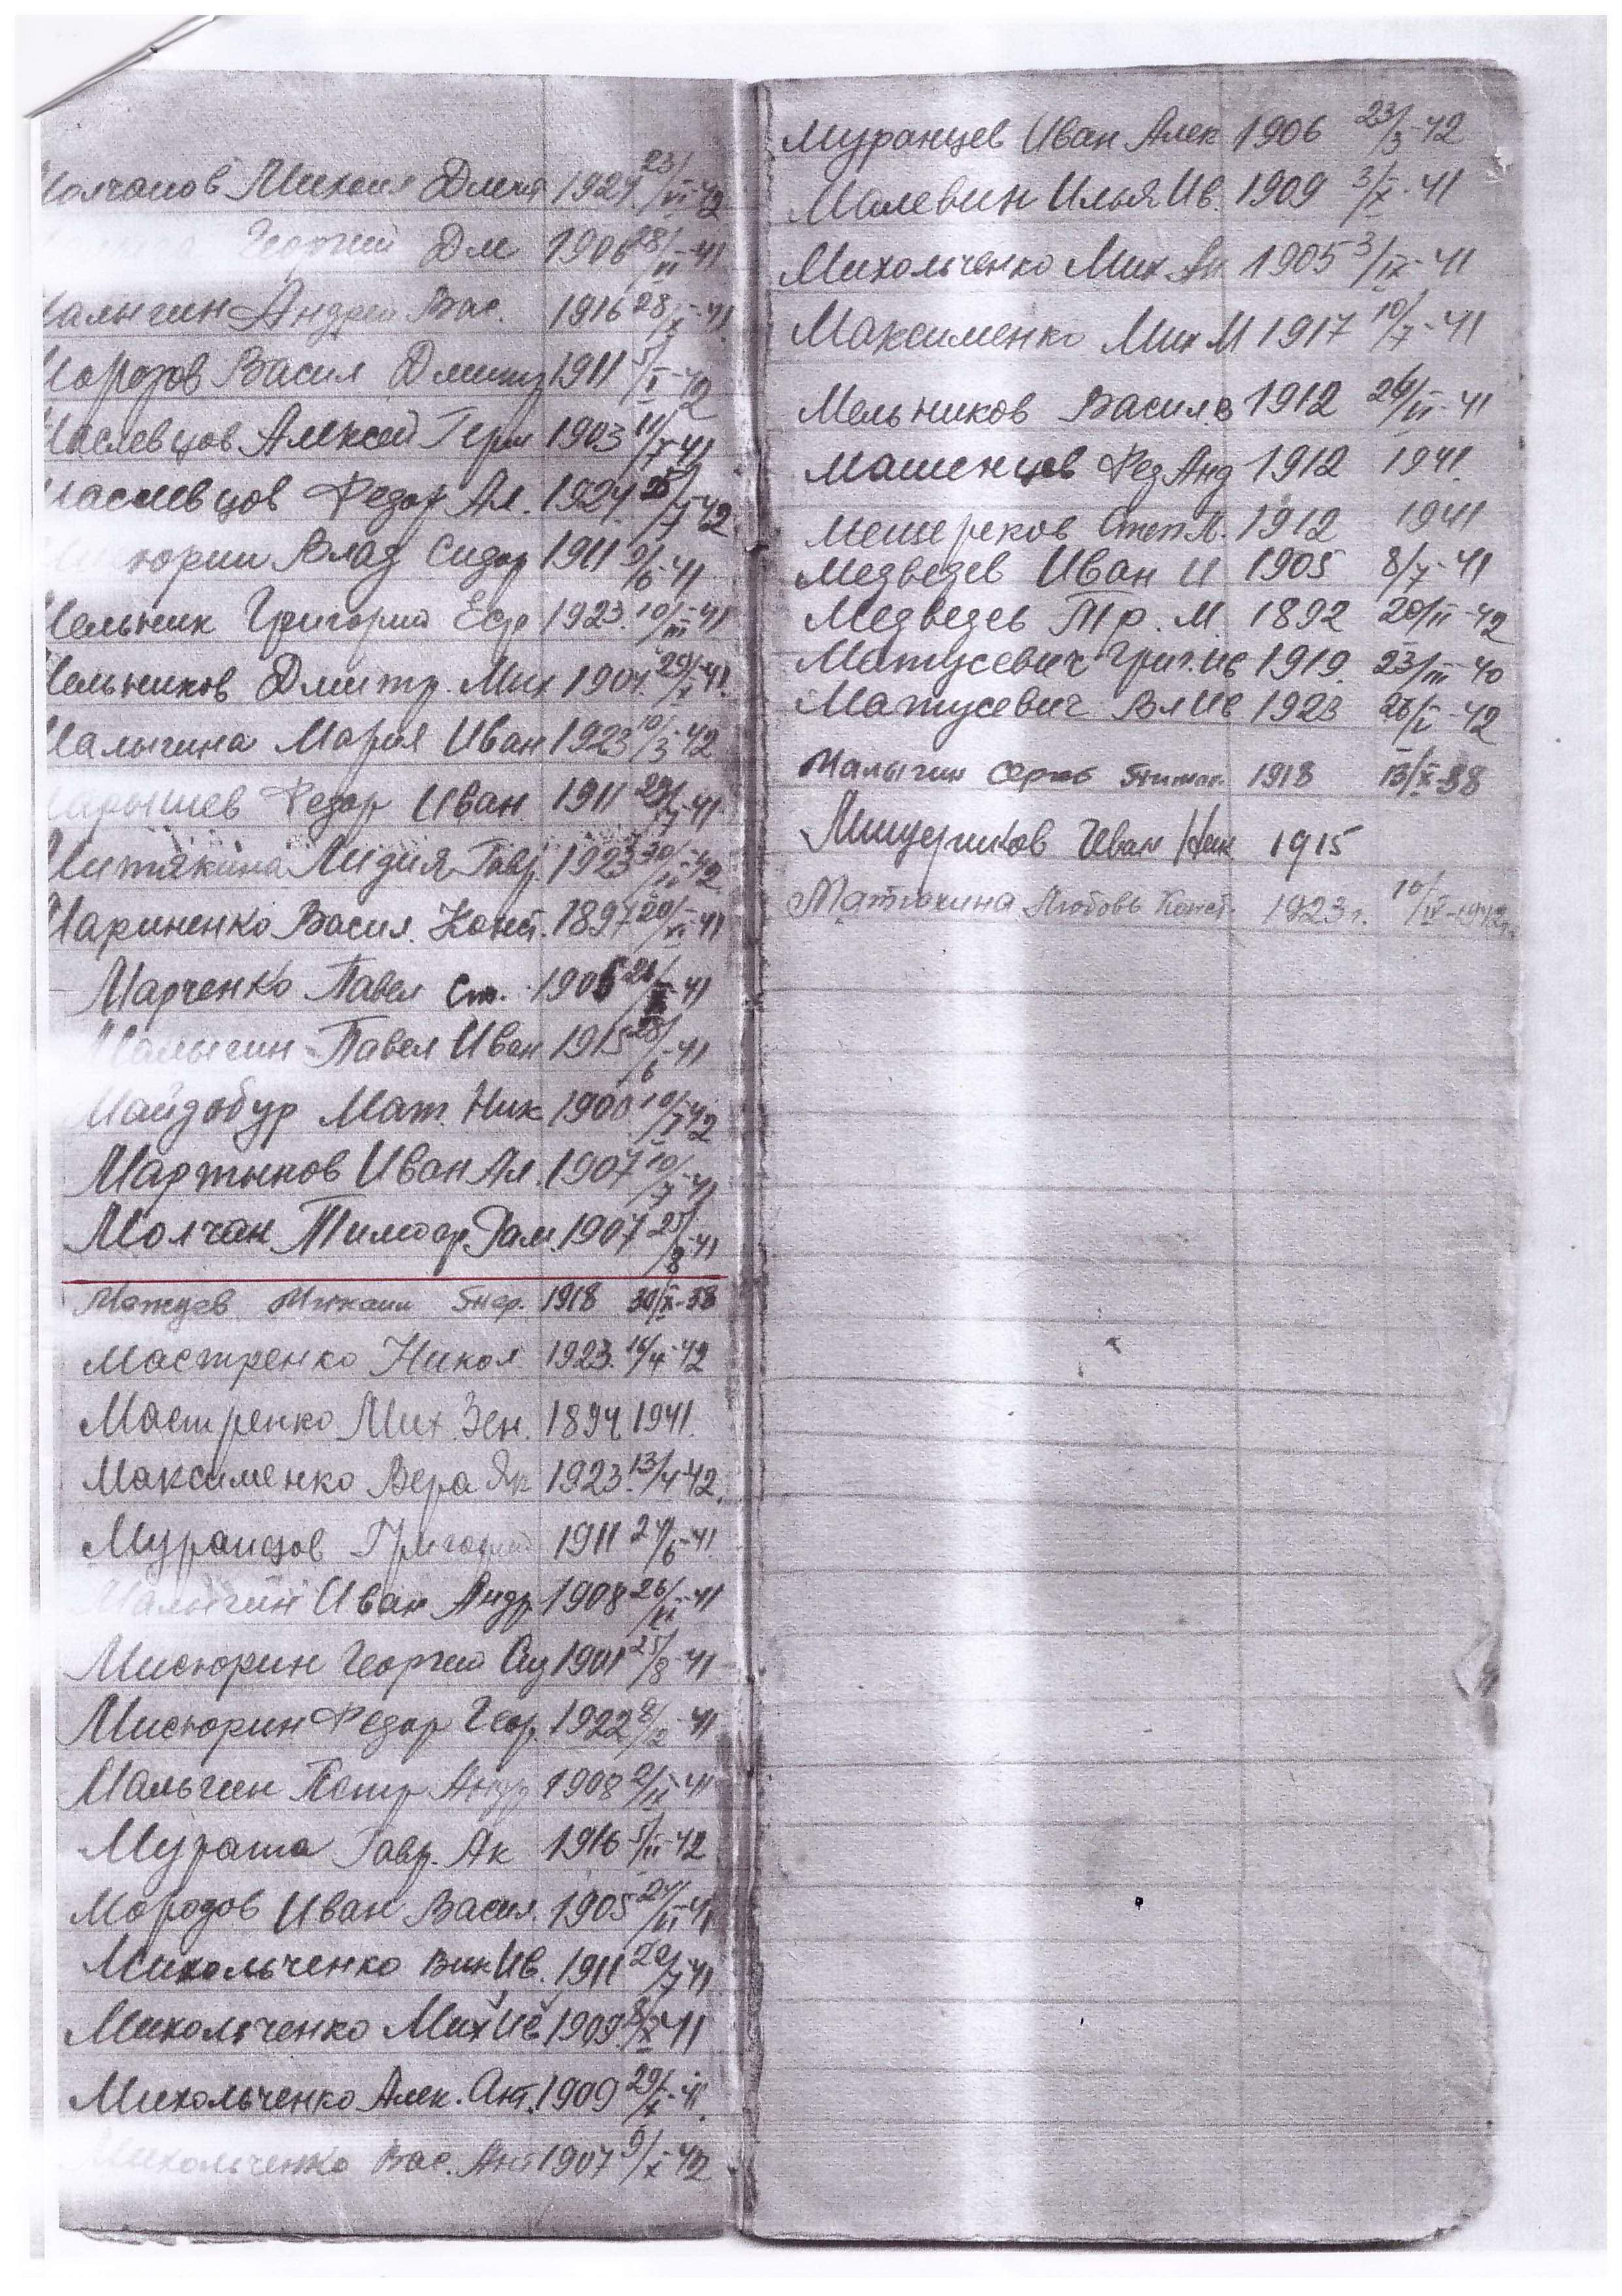 Молчанов Михаил Дмит 1924 23/VI-42
Георгий Дм 1906 28/VI-41
Малыгин Андрей Вас. 1916 28/X-41
Морозов Васил Дмитр 1911 5/I-42
Маслевцов Алексей Герм 1903 11/7-41
Маслевцов Федор Ал. 1924 /7-42
Влад Сидор 1911 9/6-41
Мельник Григорий 1923. 10/III-41
Мельников Дмитр. Мих 1904. 29/X-41.
Малыгина Мария Иван 1923 10/3-42
Федор Иван 1911 29/7-41
Митякина Лидия Гавр. 1923 30/-42
Мариненко Васил. Конст. 1897 20/VI-41
Марченко Павел Ст. 1906 -41
Малыгин Павел Иван 1915 28/6-41
Майдобур Мат. Ник 1900 10/I-42
Мартынов Иван Ал. 1907 10/7-41
Молчан Тимоф. Рам. 1907 25/8-41
Михаил 1918 30/X-38
Мастренко Никол 1923. 16/4-42
Мастренко Мих. Зен. 1894 1941.
Максименко Вера Як 1923. 13/4-42.
Муранцов Григорий 1911 24/6-41.
Малыгин Иван Андр 1908 26/VI-41
Мисюрин Георгий Сид 1901 25/8-41
Мисюрин Федор Геор. 1922 8/12-41
Малыгин Петр Андр 1908 2/IX-41
Мурата Гавр. Ак 1916 5/II-42
Морозов Иван Васил. 1905 24/VI-41
Михольченко Вик Ив. 1911 20/7-41
Михольченко Мих Ив. 1909. 8/X-41
Михольченко Алек. Ант. 1909 29/X-41.
Михольченко Вас. Ант 1907 9/X-42
Муранцев Иван Алек 1906 23/3-42
Малевин Илья Ив. 1909 3/X-41
Михольченко Мих Ан 1905 3/IX-41
Максименко Мих М 1917 10/7-41
Мельников Васил. 1912 26/VI-41
Машенцов Фед Анд 1912 1941.
Мещеряков Степ М. 1912 1941
Медведев Иван И 1905 8/7-41
Медведев Тр. М. 1892 20/II-42
Матусевич Григ. Ив 1919. 23/III-40
Матусевич Вл Ив 1923 26/I-42
Малыгин 1918 13/X-38
Мищериков Иван Ник 1915
Матюхина Любовь Конст. 1923г. 10/IV-1942г.